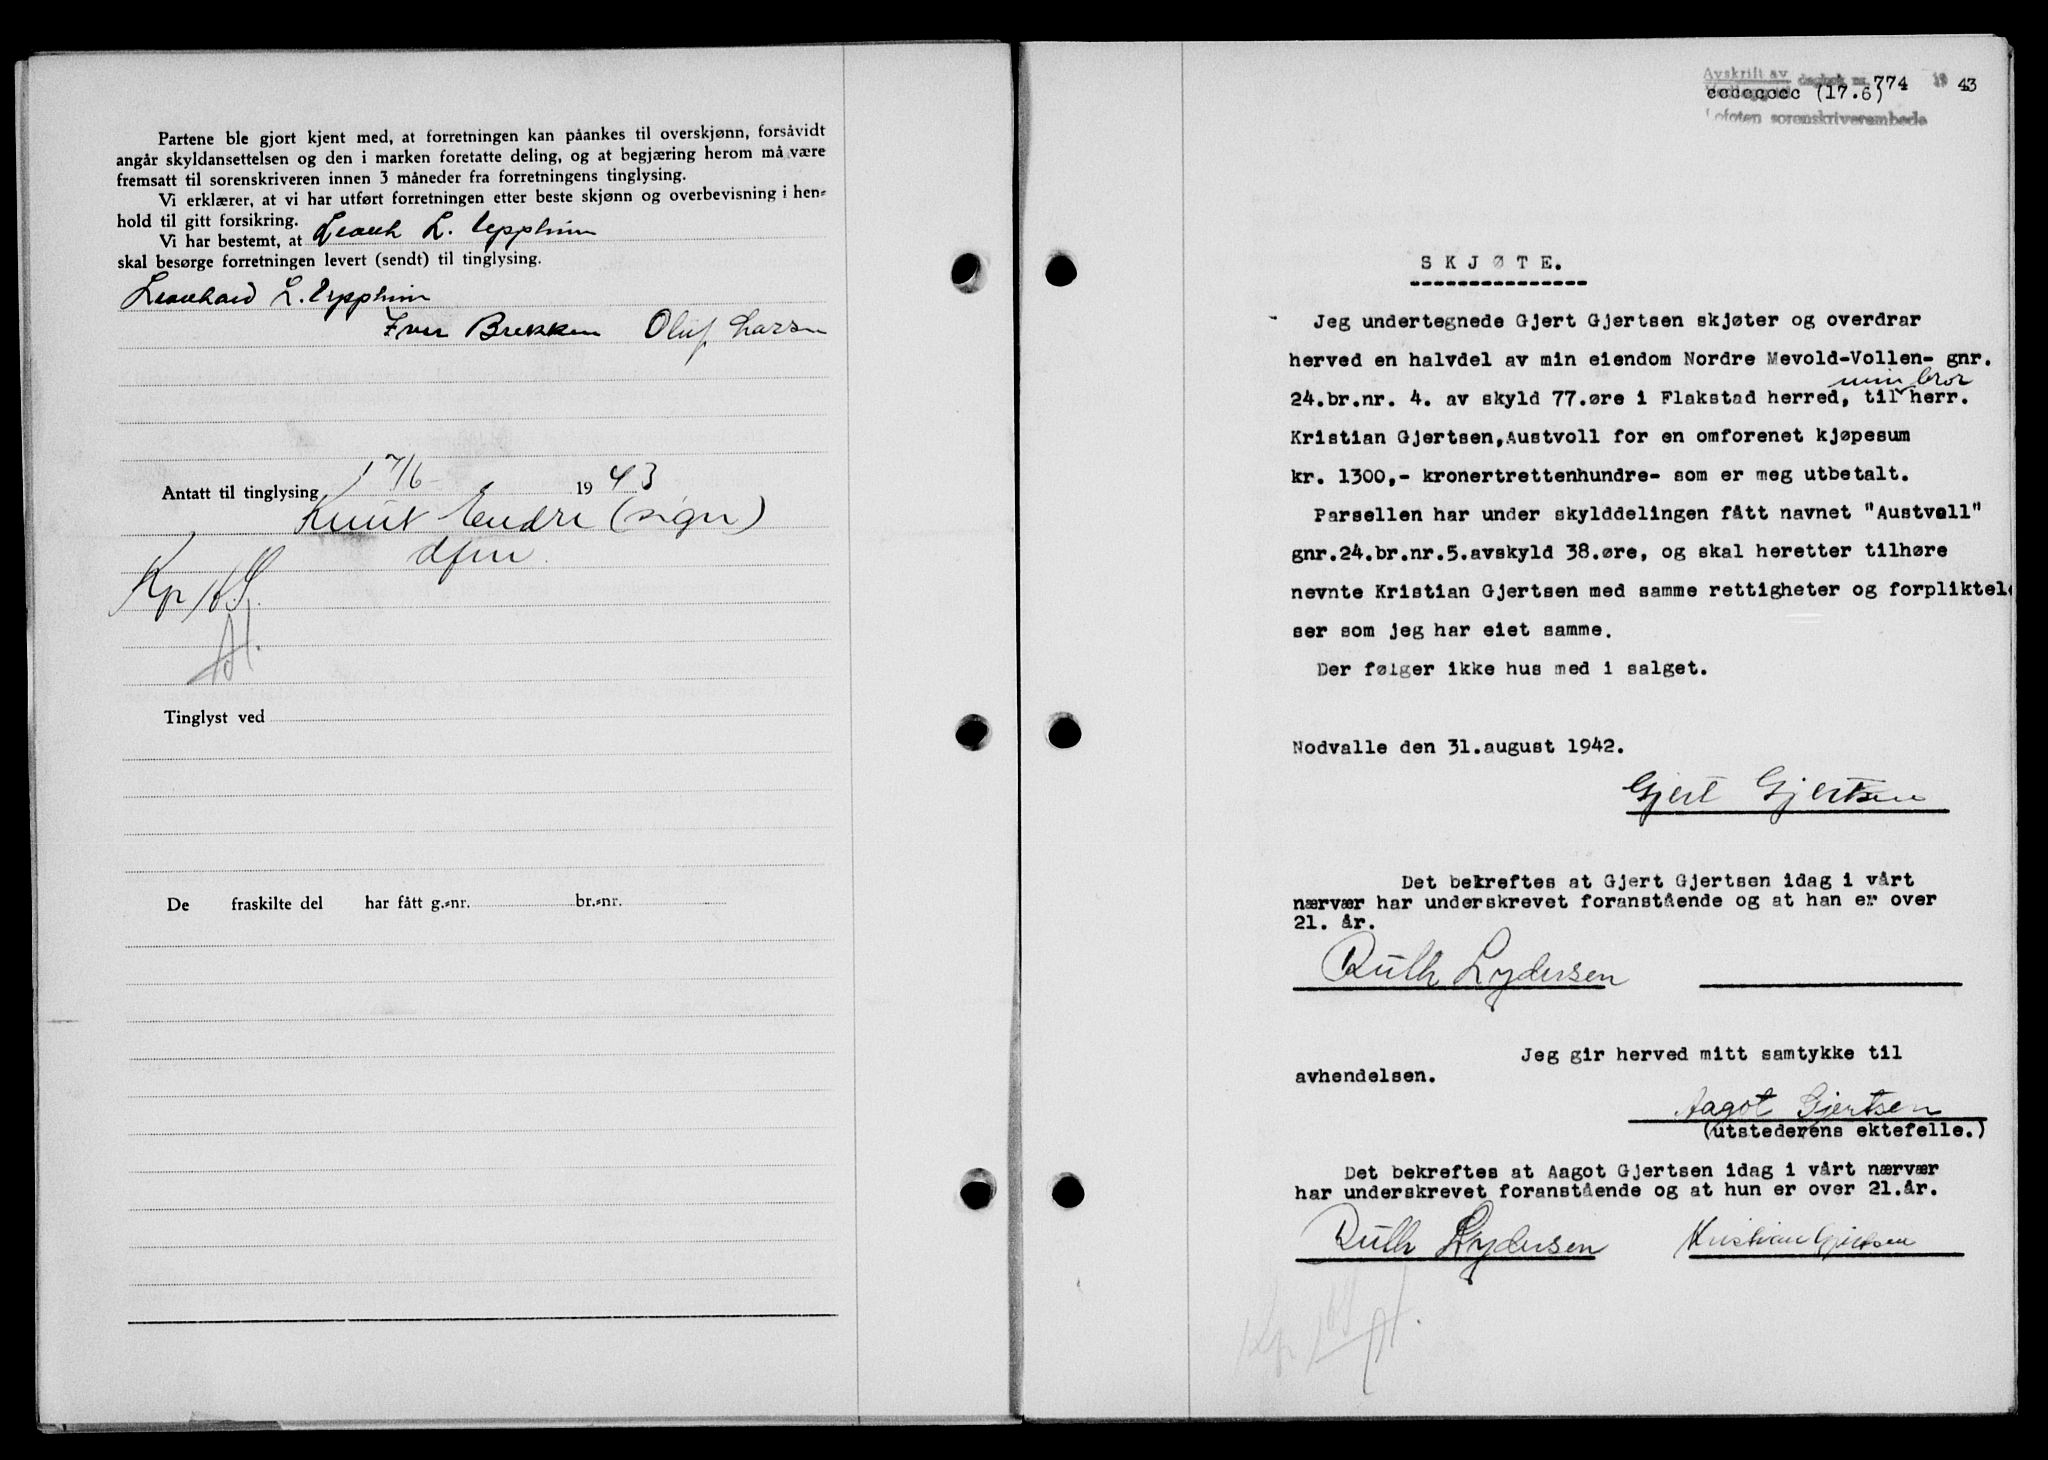 Partene ble gjort kjent med, at forretningen kan påankes til overskjønn, forsåvidt
angår skyldansettelsen og den i marken foretatte deling, og at begjæring herom må være
fremsatt til sorenskriveren innen 3 måneder fra forretningens tinglysing.
Vi erklærer, at vi har utført forretningen etter beste skjønn og overbevisning i hen-
hold til gitt forsikring.
Vi har bestemt, at Leonh L.
skal besørge forretningen levert (sendt) til tinglysing.
Leonhard L.
Iver Brekken Oluf Larsen
Antatt til tinglysing 17/6- 1943
Knut Endre (sign)
dfm
Kp
Tinglyst ved
De fraskilte del har fått g.-nr. br.-nr.
Avskrift av dagbok nr. 774 19 43
cccccccc (17.6)
Lofoten sorenskriverembede
SKJØTE.
Jeg undertegnede Gjert Gjertsen skjøter og overdrar
herved en halvdel av min eiendom Nordre Mevold-Vollen- gnr.
min bror
24.br.nr. 4. av skyld 77.øre i Flakstad herred, til herr.
Kristian Gjertsen,Austvoll for en omforenet kjøpesum
kr. 1300,- kronertrettenhundre- som er meg utbetalt.
Parsellen har under skylddelingen fått navnet "Austvoll"
gnr.24.br.nr.5.avskyld 38.øre, og skal heretter tilhøre
nevnte Kristian Gjertsen med samme rettigheter og forpliktel
ser som jeg har eiet samme.
Der følger ikke hus med i salget.
Nodvalle den 31.august 1942.
Gjert Gjertsen
Det bekreftes at Gjert Gjertsen idag i vårt
nærvær har underskrevet foranstående og at han er over
21. år.
Ruth Lydersen
Jeg gir herved mitt samtykke til
avhendelsen.
Aagot Gjertsen
(utstederens ektefelle.)
Det bekreftes at Aagot Gjertsen idag i vårt nærvær
har underskrevet foranstående og at hun er over 21.år.
Ruth Lydersen Kristian Gjertsen
Kp